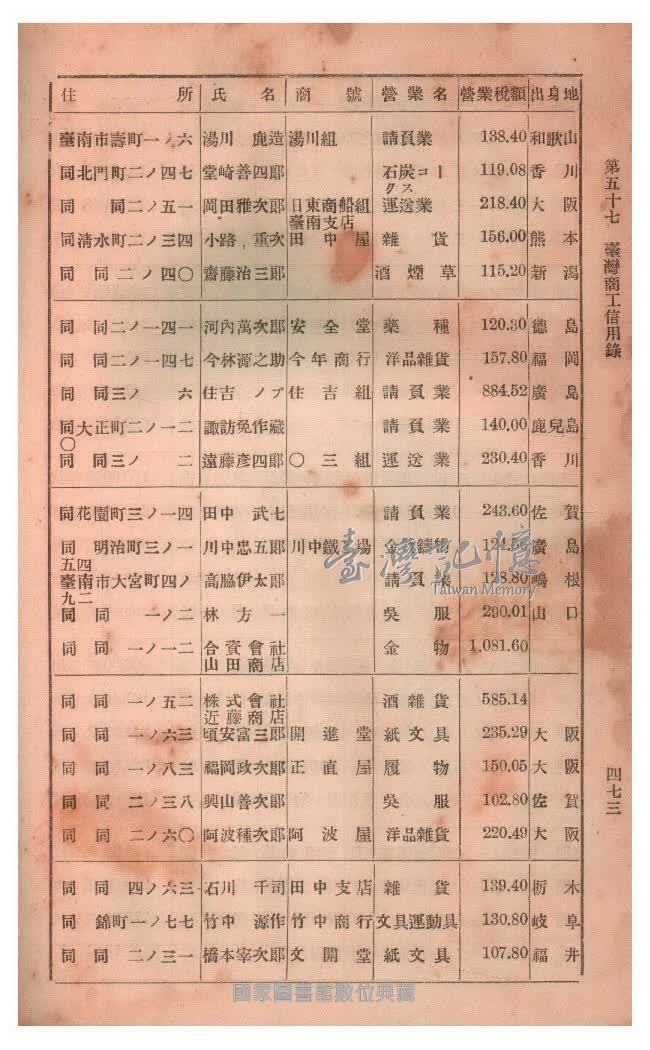 住所 氏名 商號 營業名 營業稅額 出身地
臺南市壽町一ノ六 湯川鹿造 湯川組 請負業 138.40 和歌山
同北門町二ノ四七 堂崎善四郎 石炭コークス 119.08 香川
同 同二ノ五一 岡田雅次郎 日東商船組臺南支店 運送業 218.40 大阪
同淸水町二ノ三四 小路重次 田中屋 雜貨 156.00 熊本
同 同二ノ四〇 齋藤治三郎 酒煙草 115.20 新潟
同 同二ノ一四一 河內萬次郎 安全堂 藥種 120.30 德島
同 同二ノ一四七 今林源之助 今年商行 洋品雜貨 157.80 福岡
同 同三ノ六 住吉ノブ 住吉組 請負業 884.52 廣島
同大正町二ノ一二〇 諏訪兔作藏 請負業 140.00 鹿兒島
同 同三ノ二 遠藤彥四郎 〇三組 運送業 230.40 香川
同花園町三ノ一四 田中武七 請負業 243.60 佐賀
同 明治町三ノ一五四 川中忠五郎 川中鐵場 金物 廣島
臺南市大宮町四ノ九二 高脇伊太郎 請負業 128.80 嶋根
同 同 一ノ二 林方一 吳服 290.01 山口
同 同 一ノ一二 合資會社山田商店 金物 1,081.60
同 同 一ノ五二 株式會社近藤商店 酒雜貨 585.14
同 同 一ノ六三 頃安富三郎 開進堂 紙文具 235.29 大阪
同 同 一ノ八三 福岡政次郎 正直屋 履物 150.05 大阪
同 同 二ノ三八 興山善次郎 吳服 102.80 佐賀
同 同 二ノ六〇 阿波種次郎 阿波屋 洋品雜貨 220.49 大阪
同 同 四ノ六三 石川千司 田中支店 雜貨 139.40 栃木
同 錦町一ノ七七 竹中源作 竹中商行 文具運動具 130.80 岐阜
同 同 二ノ三一 橋本宰次郎 文開堂 紙文具 107.80 福井
第五十七 臺灣商工信用錄
四七三
臺灣記憶
Taiwan Memory
國家圖書館數位典藏